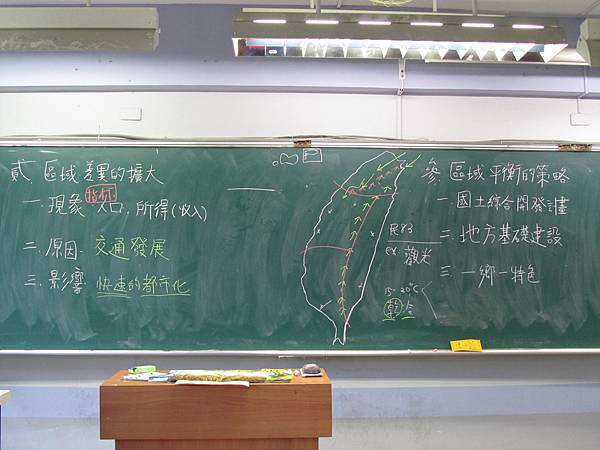 貳.區域差異的擴大
一.現象 指標 人口.所得(收入)
二.原因.交通發展
三.影響 快速的都市化
P.83
ex.觀光
15-20°C
乾冷
參.區域平衡的策略
一.國土綜合開發計畫
二.地方基礎建設
三.一鄉一特色